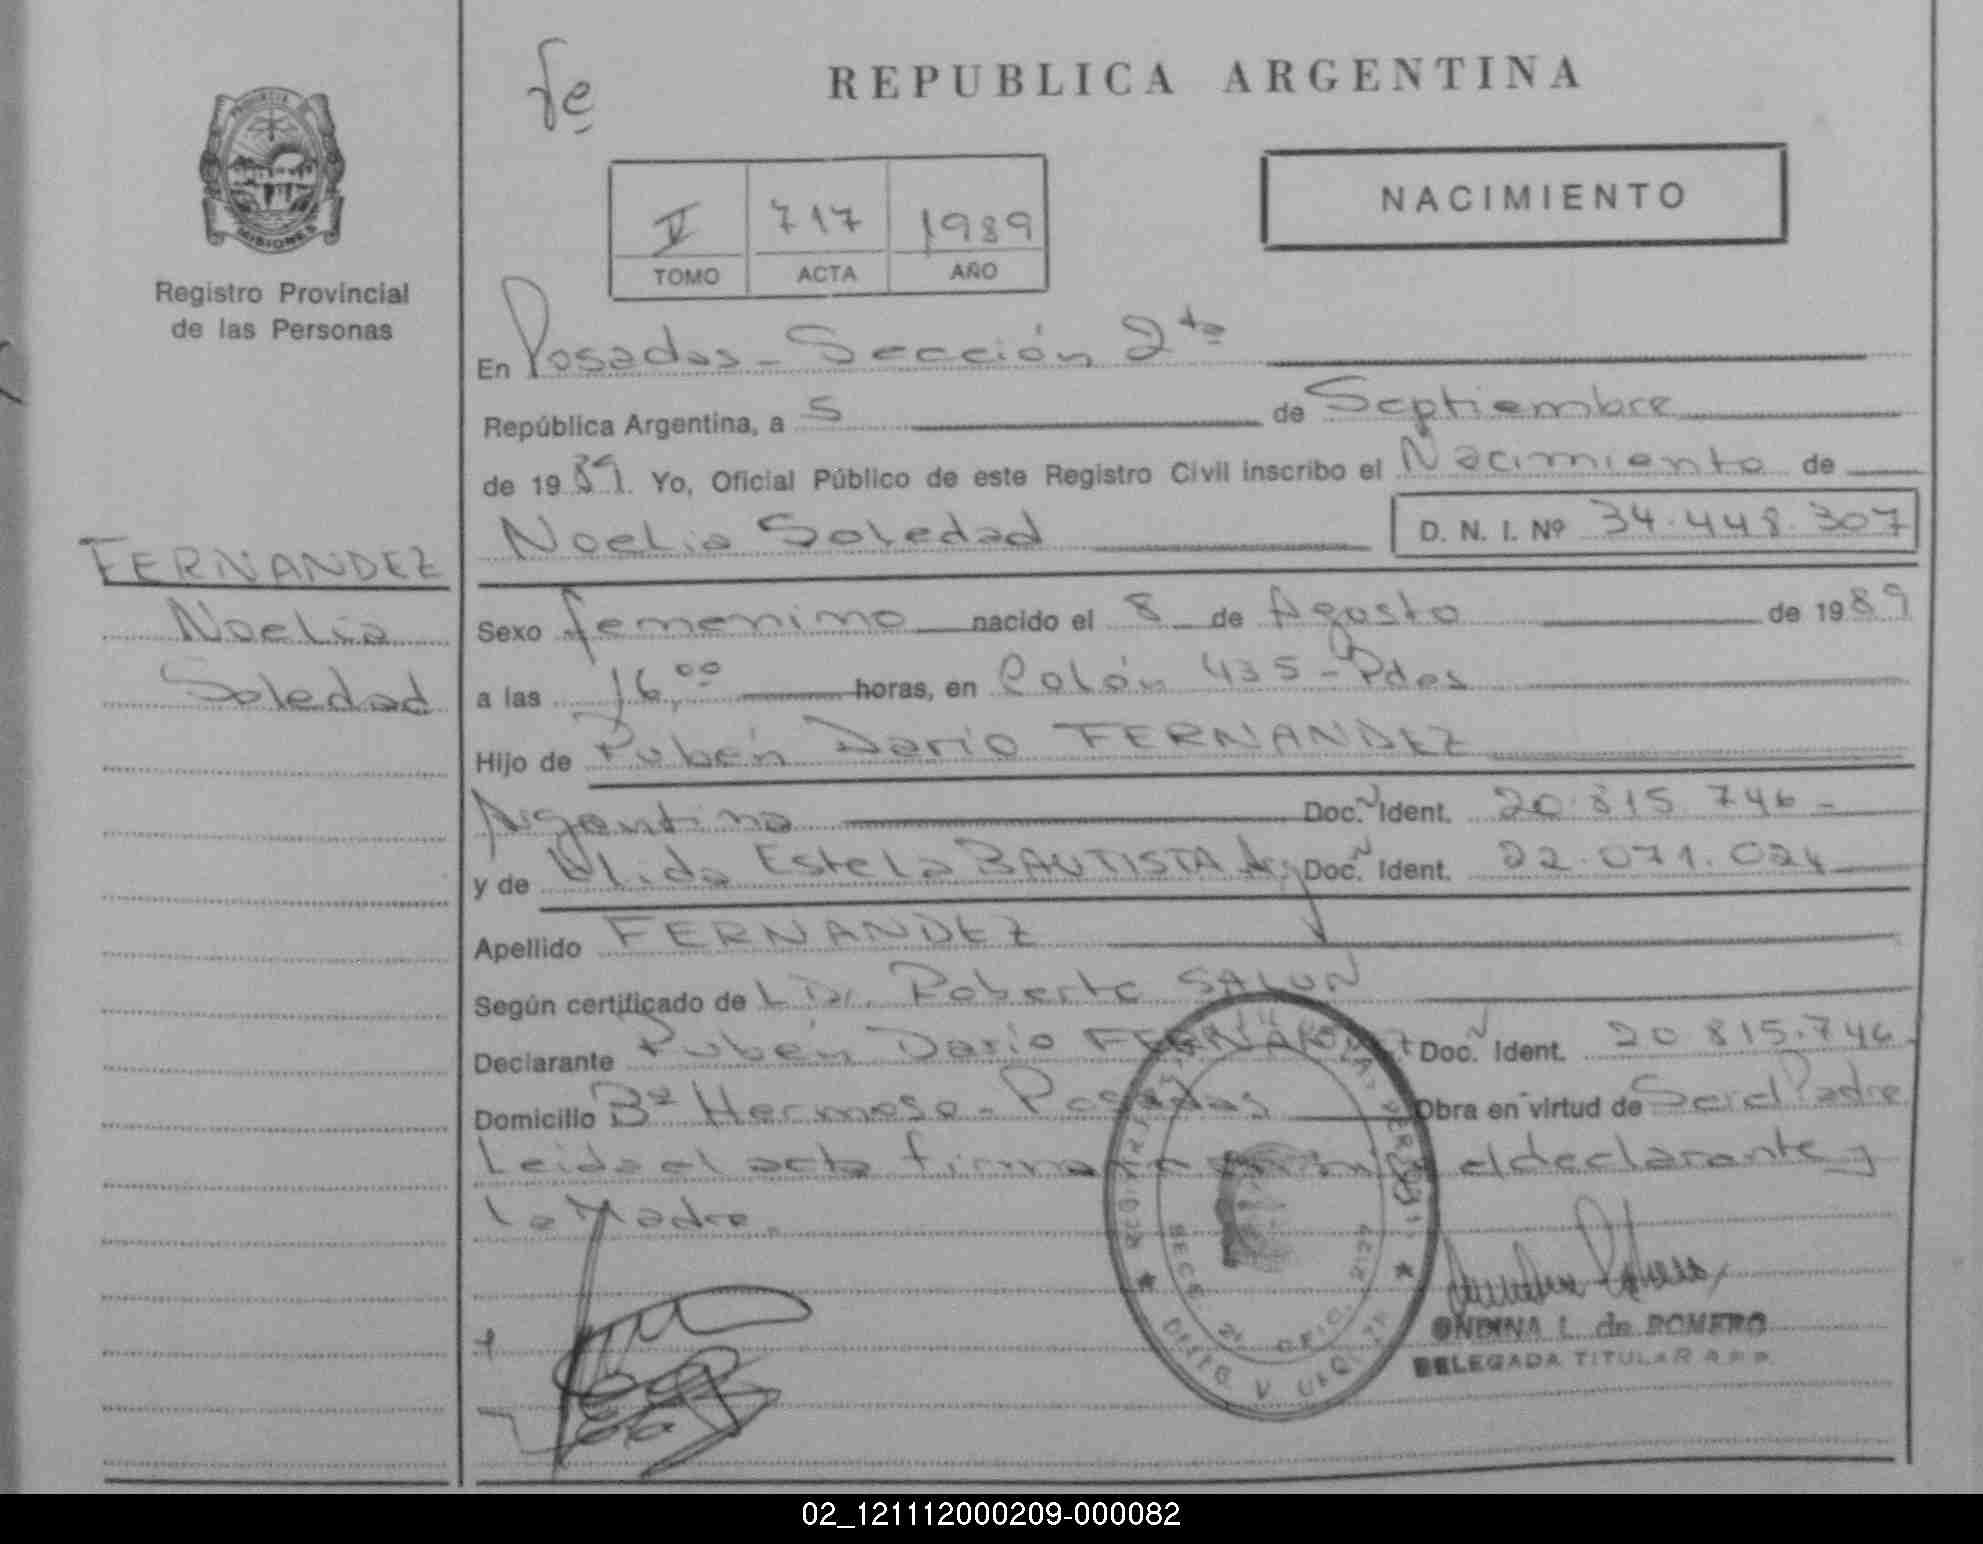 fe
REPUBLICA ARGENTINA
PROVINCIA
MISIONES
Registro Provincial
de las Personas
V 717 1989
TOMO ACTA AÑO
NACIMIENTO
En Posadas - Sección 2da
República Argentina, a 5 de Septiembre
de 1989. Yo, Oficial Público de este Registro Civil inscribo el Nacimiento de
Noelia Soledad D. N. I. Nº 34.448.307
FERNANDEZ
Noelia
Soledad
Sexo femenino nacido el 8 de Agosto de 1989
a las 16,00 horas, en Colón 435 - Pdas
Hijo de Rubén Darío FERNANDEZ
Argentino Doc. Ident. 20.815.746 -
y de Estela BAUTISTA Arg Doc. Ident. 22.071.024
Apellido FERNANDEZ
Según certificado de Dr. Roberto
Declarante Rubén Darío FERNANDEZ Doc. Ident. 20 815.746
Domicilio Bº Hermoso - Posadas Obra en virtud de Ser el Padre
Leida el acta firman mi el declarante y
la Madre.
ONDINA L. de ROMERO
DELEGADA TITULAR R.P.P.
02_121112000209-000082